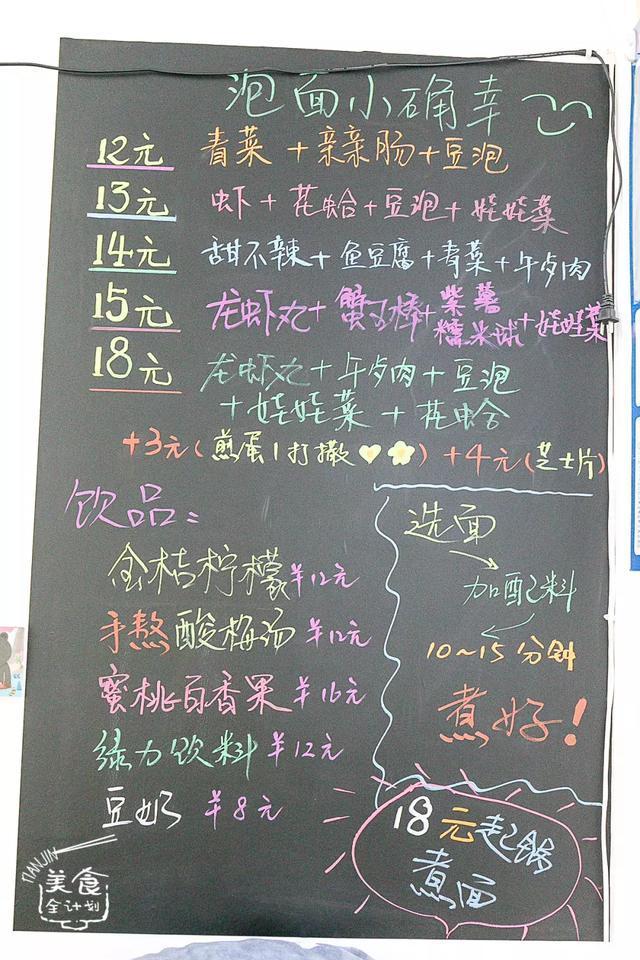 泡面小确幸
12元 青菜+亲亲肠+豆泡
13元 虾+花蛤+豆泡+娃娃菜
14元 甜不辣+鱼豆腐+青菜+午歺肉
15元 龙虾丸+蟹子棒+紫薯糯米球+娃娃菜
18元 龙虾丸+午歺肉+豆泡
+娃娃菜+花蛤
+3元(煎蛋|打撒) +4元(芝士片)
饮品:
金桔柠檬¥12元
手熬酸梅汤 ¥12元
蜜桃百香果 ¥16元
绿力饮料 ¥12元
豆奶 ¥8元
选面
加配料
10~15分钟
煮好!
18元起锅
煮面
TIANJIN
美食
全计划